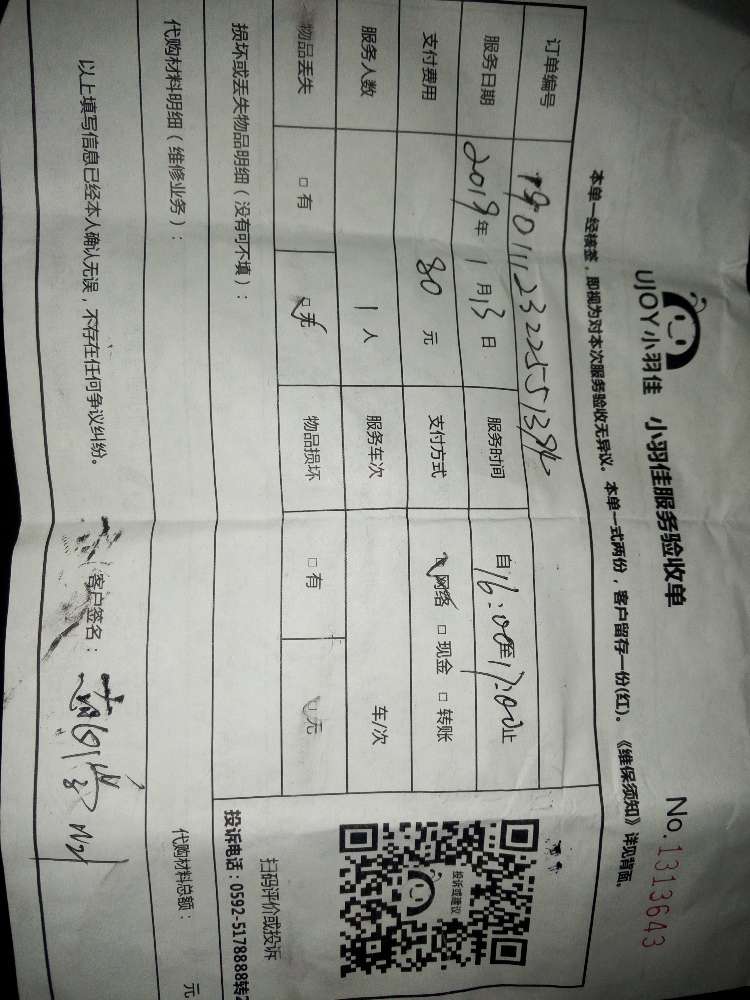 UJOY小羽佳 小羽佳服务验收单
No.1313643
本单一经核签，即视为对本次服务验收无异议。本单一式两份，客户留存一份(红)。《维保须知》详见背面。
订单编号
服务日期 2019年1月13日 服务时间 自16:00至17:00止
支付费用 80元 支付方式 □网络 □现金 □转账
服务人数 1人 服务车次 车/次
物品丢失 □有 □无 物品损坏 □有 □无
损坏或丢失物品明细（没有可不填）：
扫码评价或投诉
投诉电话：0592-5178888转2
投诉或建议
代购材料明细（维修业务）：
代购材料总额： 元
以上填写信息已经本人确认无误，不存在任何争议纠纷。 客户签名：